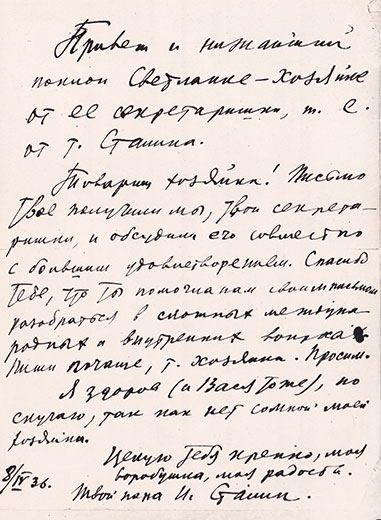 Привет и нижайший
поклон Светланке-хозяйке
от ее секретаришки, т. е.
от т. Сталина.
Товарищ хозяйка! Письмо
твое получили мы, твои секрета-
ришки, и обсудили его совместно
с большим удовлетворением. Спасибо
тебе, что ты помогла нам своим письмом
разобраться в сложных междуна
родных и внутренних вопросах
Пиши почаще, т. хозяйка. Просим.
Я здоров (и Вася тоже), но
скучаю, так как нет со мной моей
хозяйки.
Целую тебя крепко, моя
воробушка, моя радость.
8/IV 36.
Твой папа И. Сталин.